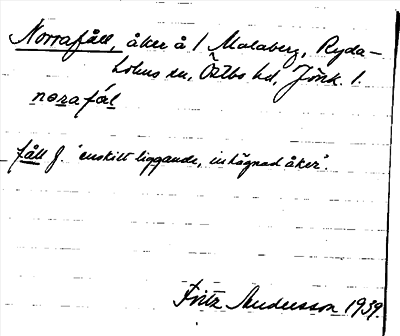 Norrafåll, åker å 1 Malaberg, Ryda-
holms sn, Östbo hd, Jönk. l.
norafȯl
fåll f. "enskilt liggande, inhägnad åker".
Fritz Andersson 1939.